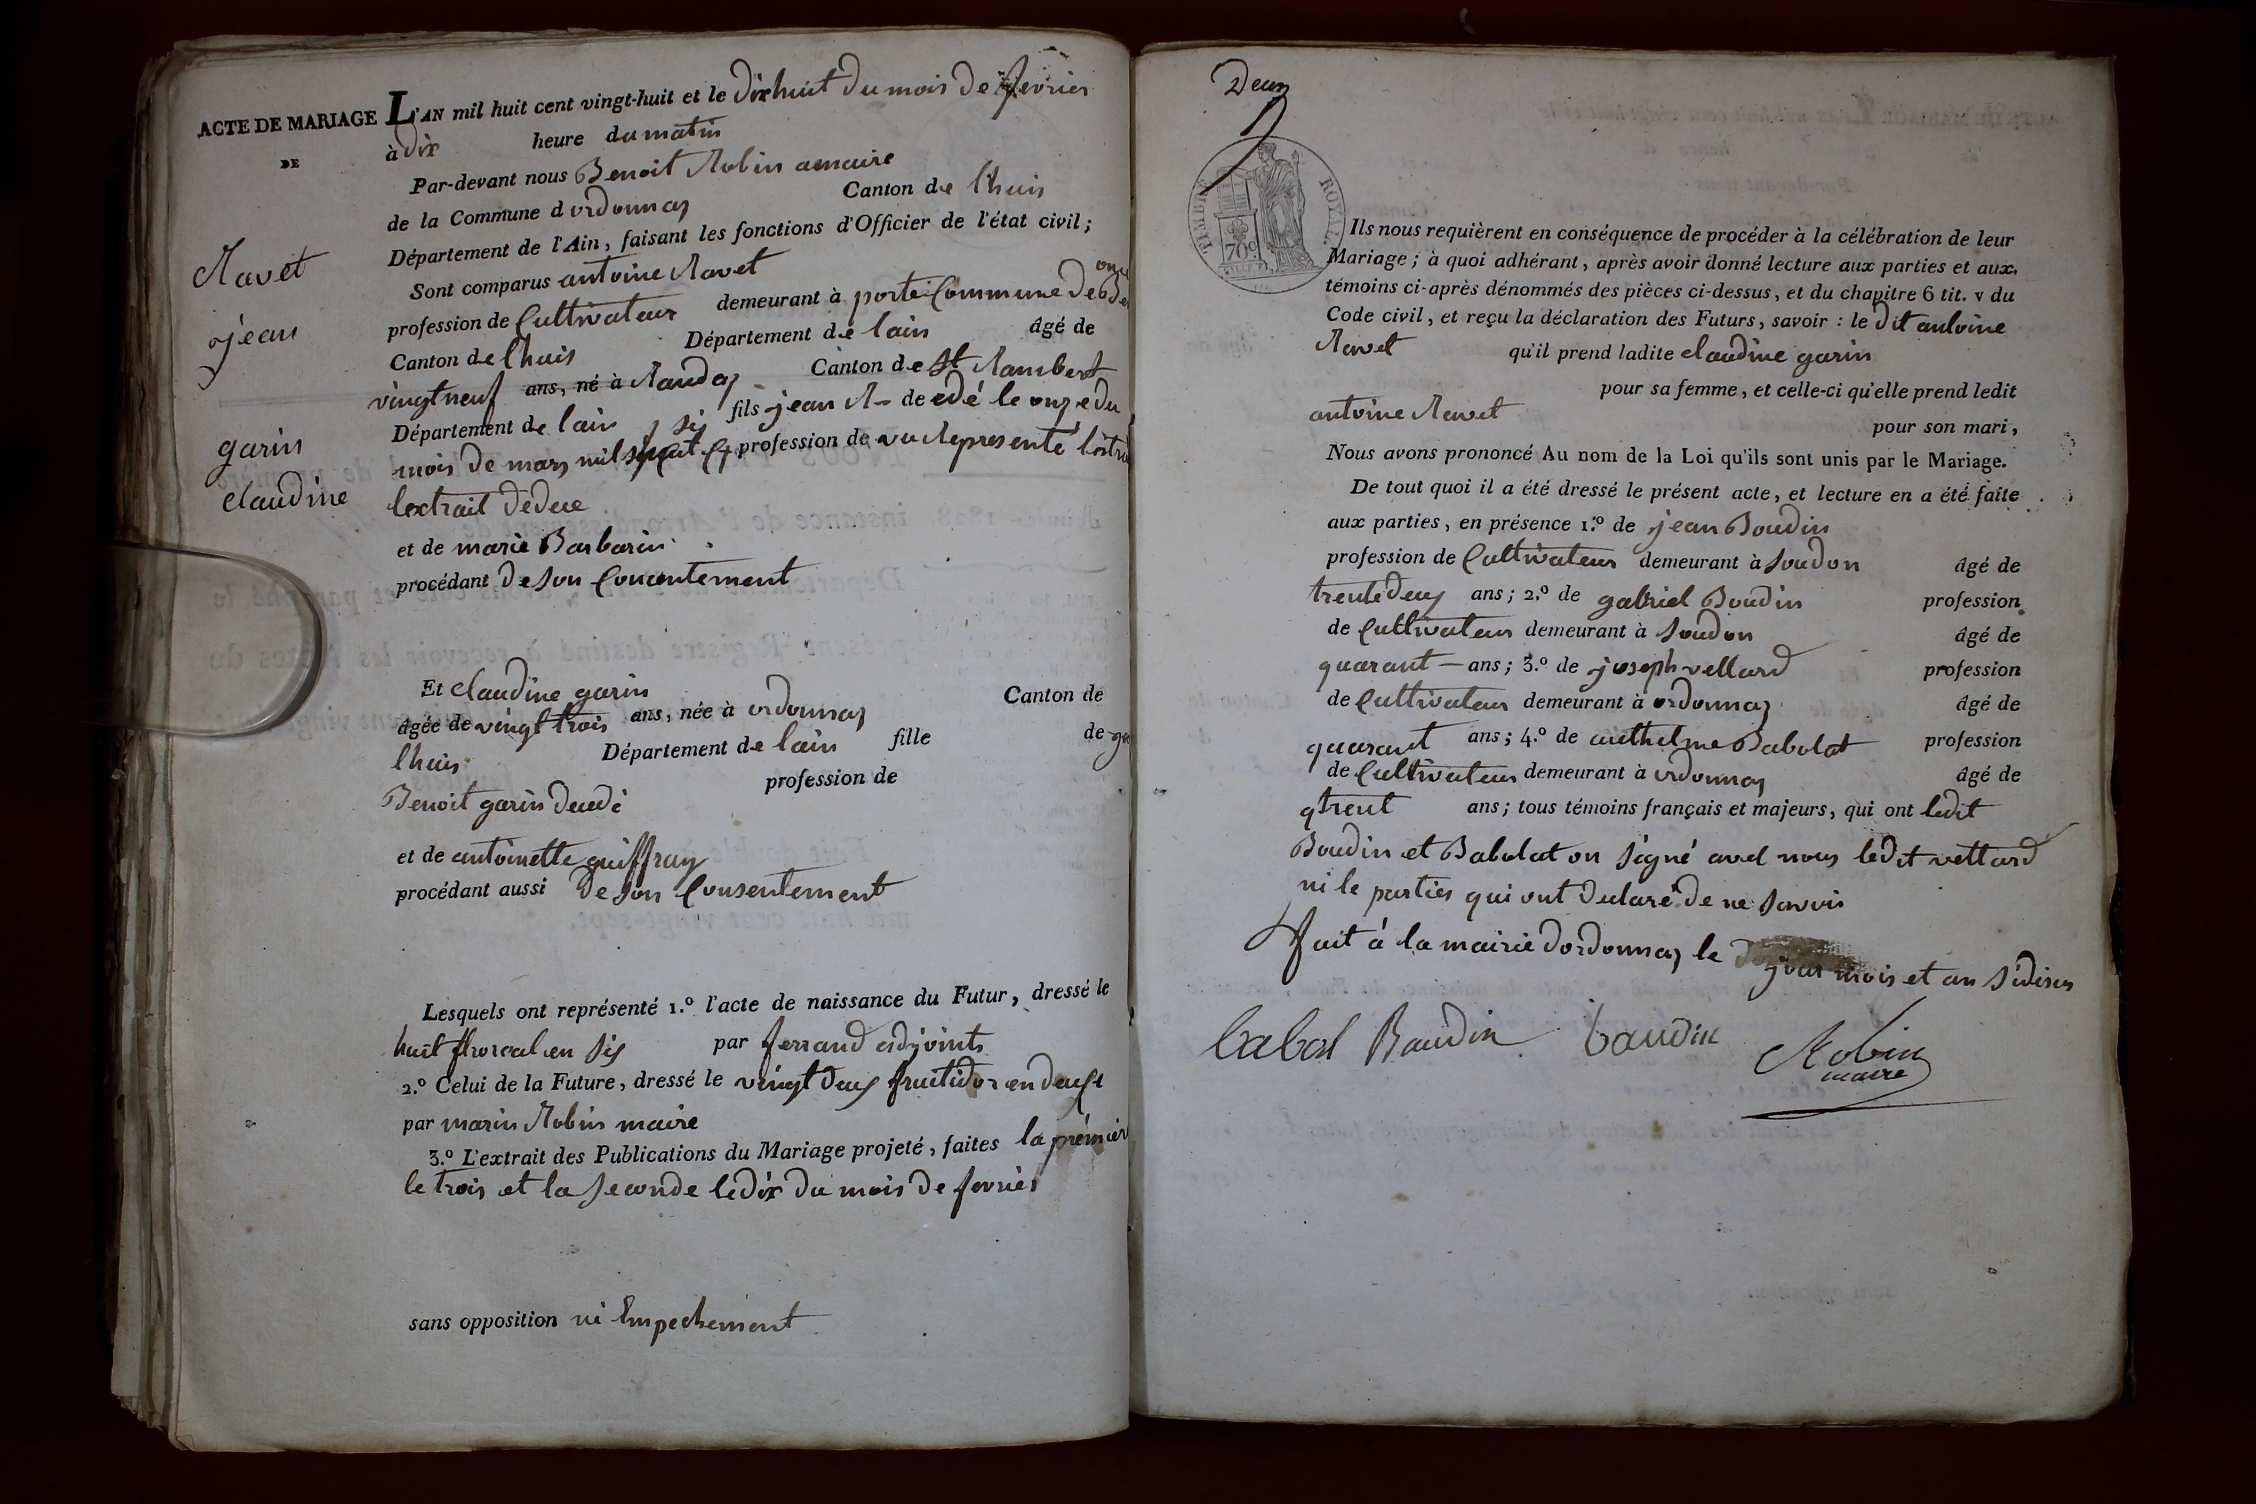 ACTE DE MARIAGE
DE
Ravet
jean
garin
claudine
L'AN mil huit cent vingt-huit et le dixhuit du mois de fevrier
à dix heure du matin
Par-devant nous Benoit Robin maire
de la Commune d ordonnaz Canton de lhuis
Département de l'Ain, faisant les fonctions d'Officier de l'état civil;
Sont comparus antoine Ravet
profession de Cultivateur demeurant à porte Commune de
Canton de lhuis Département de lain âgé de
vingt neuf ans, né à Canton de St Rambert
Département de lain fils jean R de cdé le onze du
mois de mars mil profession de vu Representé
lextrait
et de marie Barbarin
procédant de son Concentement
Et claudine garin
âgée de vingt trois ans, née à ordonnaz Canton de
lhuis Département de lain fille de
Benoit garin decedé profession de
et de antoinette guiffray
procédant aussi de son Consentement
Lesquels ont représenté 1.º l'acte de naissance du Futur, dressé le
huit floreal en six par ferrand adjoints
2.º Celui de la Future, dressé le vingt deux fruitidor en
par marin Robin maire
3.º L'extrait des Publications du Mariage projeté, faites la premier
le trois et la seconde le dix du mois de fevrier
sans opposition ni Empechement
Deux
TIMBRE ROYAL
70 c
Ils nous requièrent en conséquence de procéder à la célébration de leur
Mariage; à quoi adhérant, après avoir donné lecture aux parties et aux
témoins ci-après dénommés des pièces ci-dessus, et du chapitre 6 tit. v du
Code civil, et reçu la déclaration des Futurs, savoir : le dit antoine
Ravet qu'il prend ladite claudine garin
pour sa femme, et celle-ci qu'elle prend ledit
antoine Ravet
pour son mari,
Nous avons prononcé Au nom de la Loi qu'ils sont unis par le Mariage.
De tout quoi il a été dressé le présent acte, et lecture en a été faite
aux parties, en présence 1.º de jean Boudin
profession de Cultivateur demeurant à soudon âgé de
trente deux ans; 2.º de gabriel Boudin profession
de Cultivateur demeurant à soudon âgé de
quarant ans; 3.º de joseph vettard profession
de Cultivateur demeurant à ordonnaz âgé de
quarant ans; 4.º de anthelme Babolat profession
de Cultivateur demeurant à ordonnaz âgé de
trent ans; tous témoins français et majeurs, qui ont ledit
Boudin et Babolat on signé avel nous ledit vettard
ni le parties qui ont declaré de ne savoir
fait à la mairie dordonnaz le jour mois et an
babol Baudin baudin Robin
maire